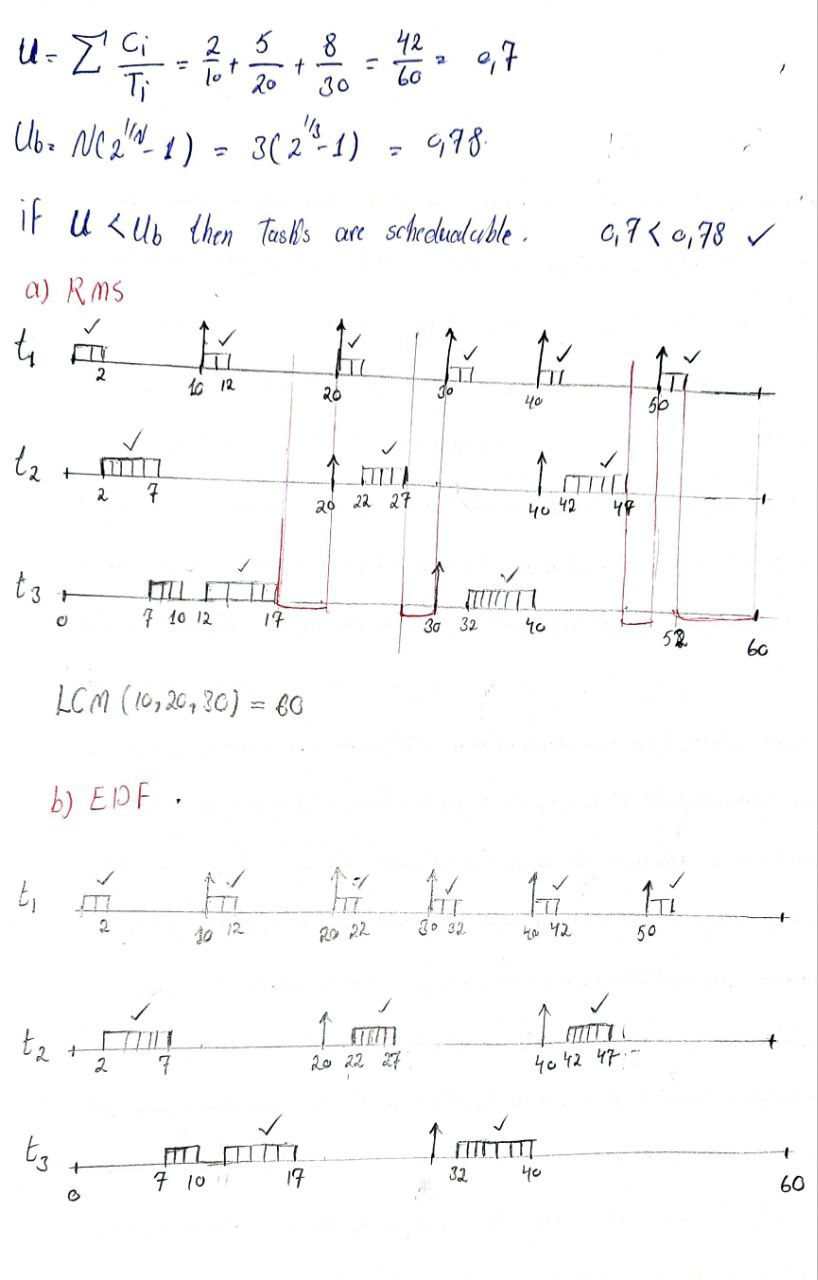 U = Σ Ci/Ti = 2/10 + 5/20 + 8/30 = 42/60 = 0,7
Ub = N(2^1/N - 1) = 3(2^1/3 - 1) = 0,78
if U < Ub then Tasks are schedualable. 0,7 < 0,78 ✓
a) RMS
t1 ✓ ✓ ✓ ✓ ✓ ✓
2 10 12 20 30 40 50
t2 ✓ ✓ ✓
2 7 20 22 27 40 42 47
t3 ✓ ✓
0 7 10 12 17 30 32 40 52 60
LCM (10, 20, 30) = 60
b) EDF .
t1 ✓ ✓ ✓ ✓ ✓ ✓
2 10 12 20 22 30 32 40 42 50
t2 ✓ ✓ ✓
2 7 20 22 27 40 42 47
t3 ✓ ✓
0 7 10 17 32 40 60